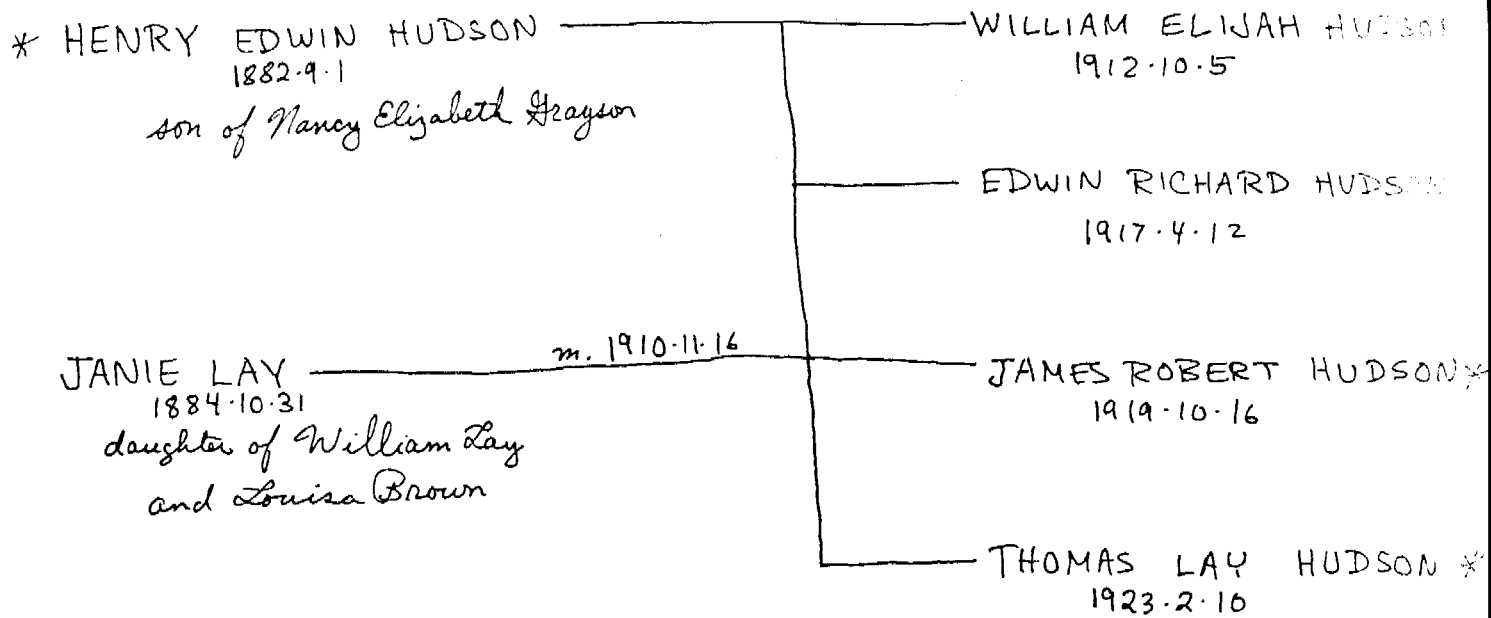 * HENRY EDWIN HUDSON
1882.9.1
son of Nancy Elizabeth Grayson
JANIE LAY
1884.10.31
daughter of William Lay
and Louisa Brown
m. 1910.11.16
WILLIAM ELIJAH HUDSON
1912.10.5
EDWIN RICHARD HUDSON
1917.4.12
JAMES ROBERT HUDSON *
1919.10.16
THOMAS LAY HUDSON *
1923.2.10